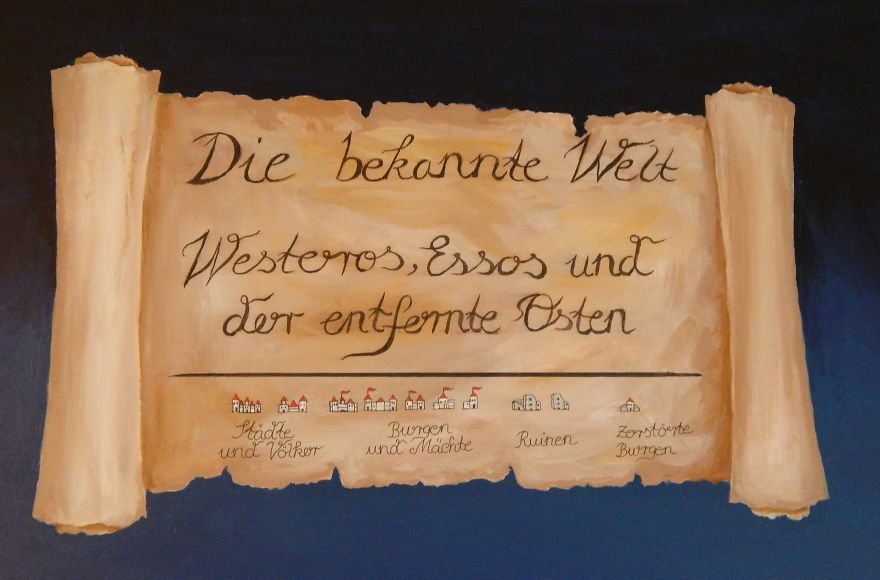 Die bekannte Welt
Westeros, Essos und
der entfernte Osten
Städte
und Völker
Burgen
und Mächte
Ruinen
Zerstörte
Burgen